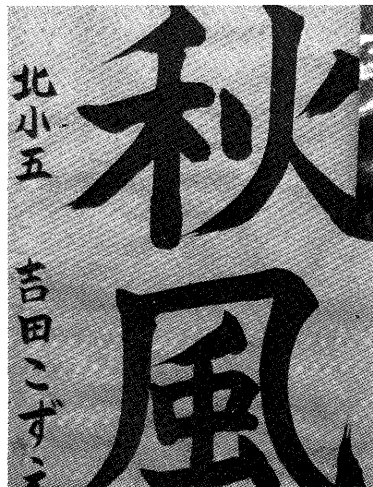 秋風
北小五 吉田こずえ